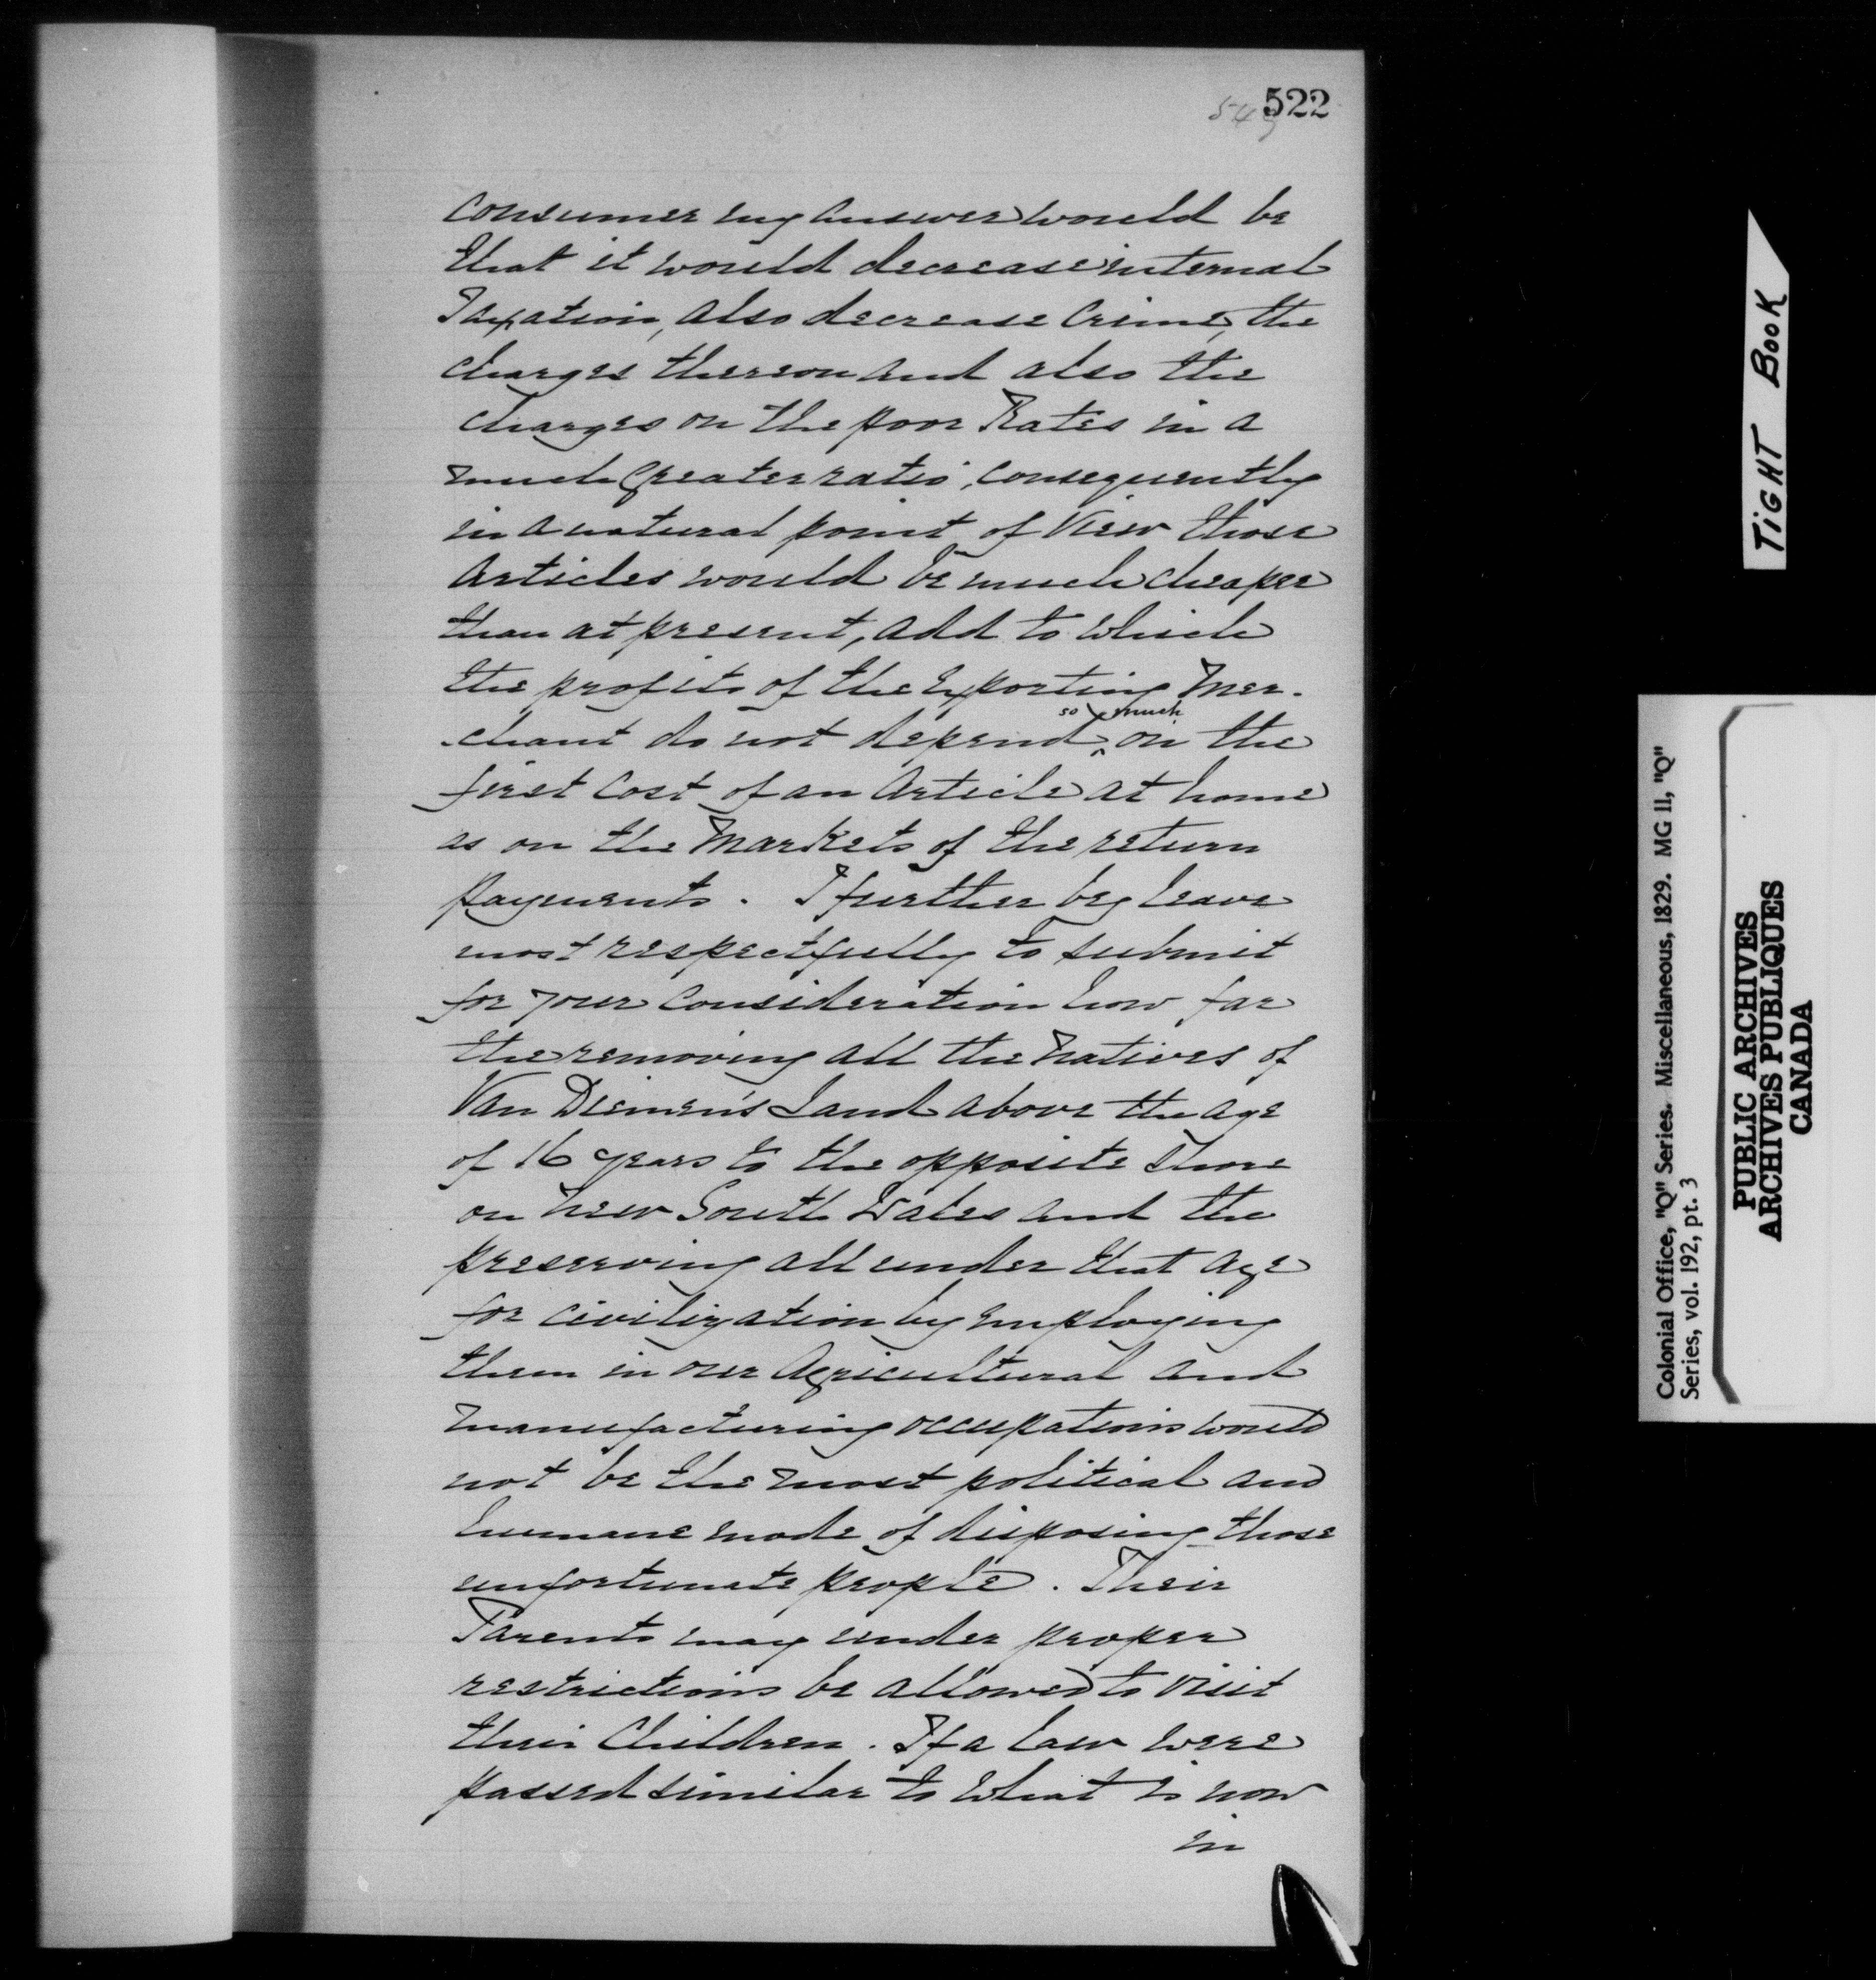 522
549
consumer my answer would be
that it would decrease internal
Taxation, also decrease Crime, the
charges thereon and also the
charges on the poor Rates in a
much Greater ratio, consequently
in a natural point of View those
Articles would be much cheaper
than at present, add to which
the profits of the Exporting Mer-
-chant do not depend so much on the
first Cost of an Article at home
as on the Markets of the return
payments. I further beg leave
most respectfully to submit
for your consideration how far
the removing all the Natives of
Van Diemen's Land above the age
of 16 years to the opposite Shore
on New South Wales and the
preserving all under that age
for civilization by employing
them in our Agricultural and
Manufacturing occupations would
not be the most political and
humane mode of disposing those
unfortunate people. Their
Parents may under proper
restrictions be allowed to visit
their Children. If a Law were
passed similar to what is now
in
TIGHT BOOK
Colonial Office, "Q" Series. Miscellaneous, 1829. MG 11, "Q"
Series, vol. 192, pt. 3
PUBLIC ARCHIVES
ARCHIVES PUBLIQUES
CANADA